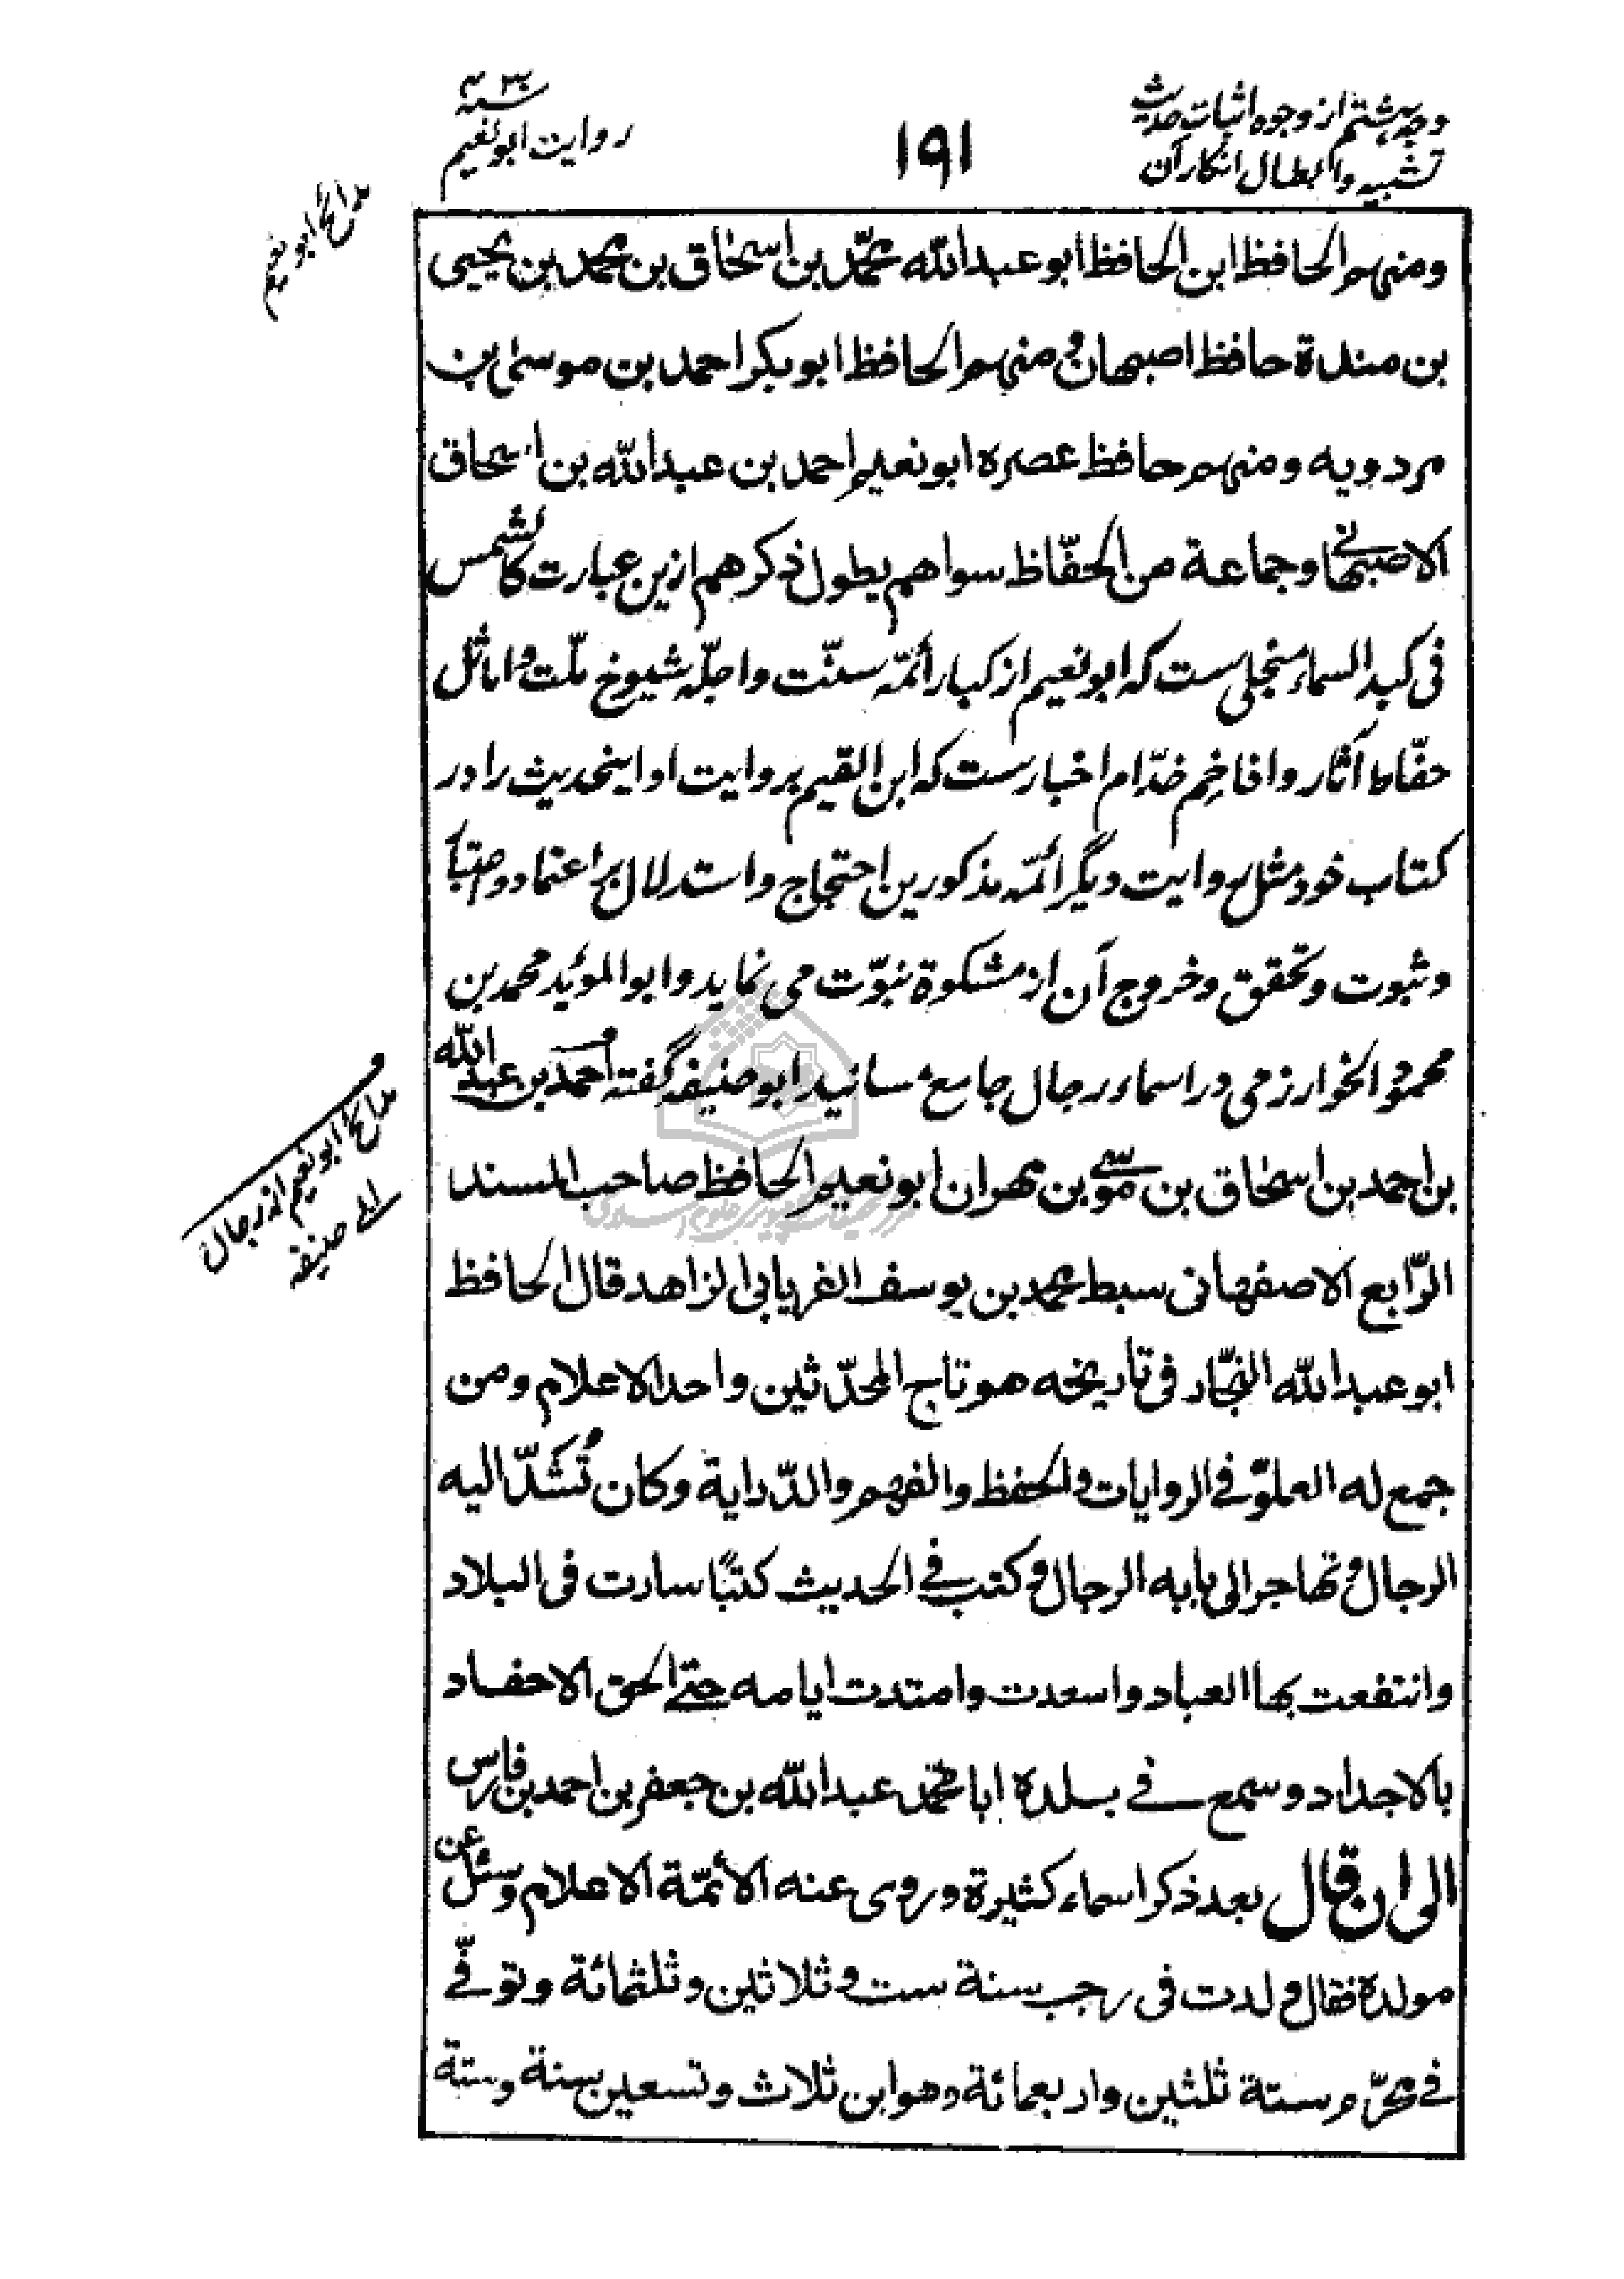 وجه هشتم از وجوه اثبات حدیث
تشبیه و ابطال انکار آن
۱۹۱
سنه ۴۳۰
روایت ابو نعیم
مدائح ابو نعیم
ومنهم الحافظ ابن الحافظ ابو عبد الله محمّد بن اسحٰاق بن محمد بن یحیی
بن مندة حافظ اصبهان ومنهم الحافظ ابو بکر احمد بن موسیٰ بن
مردویه ومنهم حافظ عصره ابو نعیم احمد بن عبد الله بن اسحاق
الاصبهانی وجماعة من الحفّاظ سواهم یطول ذکرهم ازین عبارت کالشمس
فی کبد السماء منجلی ست که ابو نعیم از کبار ائمّه سنّت واجلّه شیوخ ملّت و اماثل
حفّاظ آثار وافاخم خدّام اخبارست که ابن القیم بروایت او اینحدیث را در
کتاب خود مثل روایت دیگر ائمّه مذکورین احتجاج واستدلال بر اعتماد و اعتبار
وثبوت وتحقق وخروج آن از مشکوة نبوّت می نماید وابو الموئد محمد بن
محمود الخوارزمی در اسماء رجال جامع مسانید ابو حنیفه گفته احمد بن عبد الله
بن احمد بن اسحٰاق بن موسی بن مهران ابو نعیم الحافظ صاحب المسند
مدائح ابو نعیم از رجال
ابی حنیفه
الرّابع الاصفهانی سبط محمد بن یوسف الفریابی الزاهد قال الحافظ
ابو عبد الله النجّار فی تاریخه هو تاج المحدّثین واحد الاعلام ومن
جمع له العلوّ فی الروایات والحفظ والفهم والدّرایة وکان تُشَدّ الیه
الرجال وتهاجر الی بابه الرجال وکتب فی الحدیث کتبًا سارت فی البلاد
وانتفعت بها العباد واسعدت وامتدت ایامه حتی الحق الاحفاد
بالاجداد وسمع فی بلده ابا محمد عبد الله بن جعفر بن احمد بن فارس
الی ان قال بعد ذکر اسماء کثیرة وروی عنه الأئمّة الاعلام وسئل عن
مولده فقال ولدت فی رجب سنة ست وثلاثین وثلثمائة وتوفّی
فی محرّم سنة ثلثین واربعمائة وهو ابن ثلاث وتسعین سنة وستة